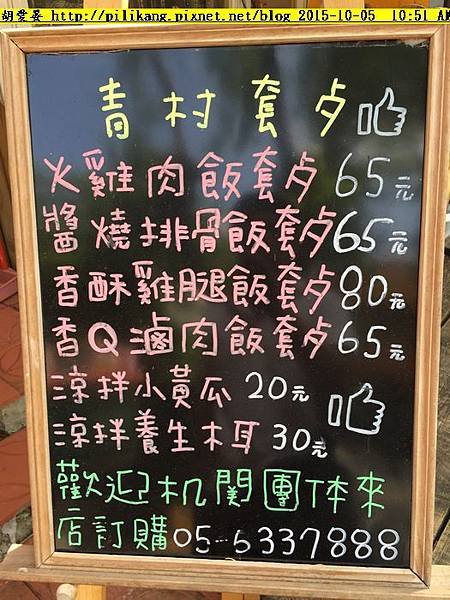 胡愛姜 http://pilikang.pixnet.net/blog 2015-10-05 10:51 AM
青村套歺
火雞肉飯套歺65元
醬燒排骨飯套歺65元
香酥雞腿飯套歺80元
香Q滷肉飯套歺65元
涼拌小黃瓜 20元
涼拌養生木耳 30元
歡迎机関團体來
店訂購05-6337888